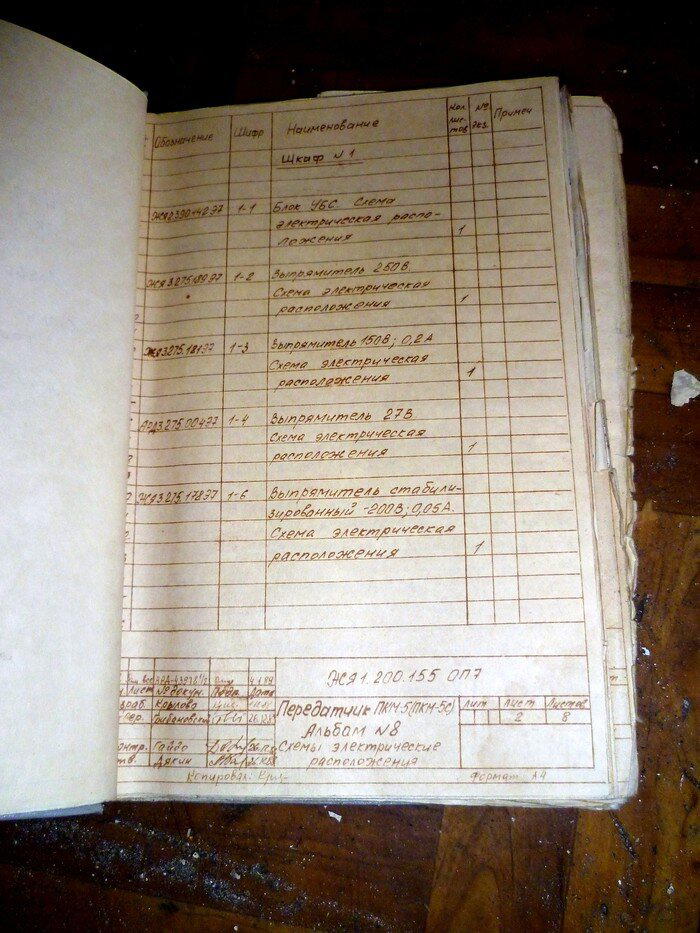 Обозначение Шифр Наименование Кол. лис- тов № экз. Примеч
Шкаф N 1
1-1 Блок УБС. Схема
электрическая распо-
ложения 1
ЖЯ3.275.189Э7 1-2 Выпрямитель 250В.
Схема электрическая
расположения 1
ЖЯ3.275.181Э7 1-3 Выпрямитель 150В; 0,2А
Схема электрическая
расположения 1
3.275.004Э7 1-4 Выпрямитель 27В
Схема электрическая
расположения 1
ЖЯ3.275.178Э7 1-6 Выпрямитель стабили-
зированный -200В; 0,05А.
Схема электрическая
расположения 1
ЖЯ1.200.155 ОП7
Лист № докум. Подп. Дата
Крылова
Передатчик ПКМ-5(ПКМ-5с)
Альбом N8
Схемы электрические
расположения
Лит Лист Листов
2 8
Гайдо
Дякин
Копировал: Формат А4